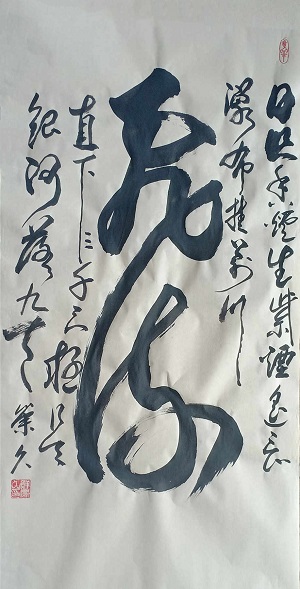 日照香爐生紫煙遥看
瀑布挂前川
飛流
直下三千尺疑是
銀河落九天